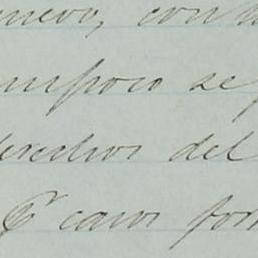 nuevo, con
mpoco se
derechos del
6 casos for